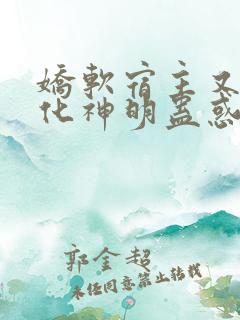 嬌軟宿主又
化神明蠱惑
郭金超
未经同意禁止转载